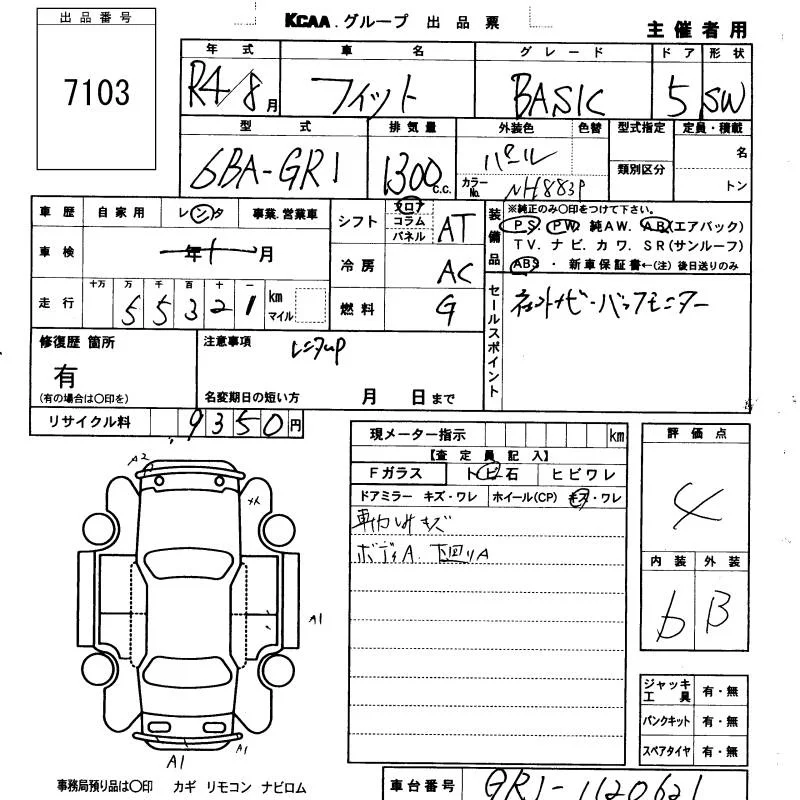 出品番号
7103
KCAA.グループ 出品票
主催者用
年式 車名 グレード ドア 形状
R4/8月 フィット BASIC 5 SW
型式 排気量 外装色 色替 型式指定 定員・積載
6BA-GR1 1300c.c. パール 名
カラーNo. NH883P 類別区分 トン
車歴 自家用 レンタ 事業.営業車
車検 年 月
走行 十万 万 千 百 十 一
55321 km マイル
シフト フロア コラム パネル AT
冷房 AC
燃料 G
装備品
※純正のみ〇印をつけて下さい。
PS. PW. 純AW. AB(エアバック)
TV. ナビ. カワ. SR(サンルーフ)
ABS ・ 新車保証書←(注) 後日送りのみ
セールスポイント
修復歴 箇所
有
(有の場合は〇印を)
注意事項
名変期日の短い方 月 日まで
リサイクル料 9350円
現メーター指示 km
【査定員記入】
Fガラス トビ石 ヒビワレ
ドアミラー キズ・ワレ ホイール(CP) キズ・ワレ
キズ
ボディA. 下廻りA
評価点
4
内装 外装
b B
A2
A1
A1
A1
ジャッキ工具 有・無
パンクキット 有・無
スペアタイヤ 有・無
事務局預り品は〇印 カギ リモコン ナビロム
車台番号 GR1-1120621